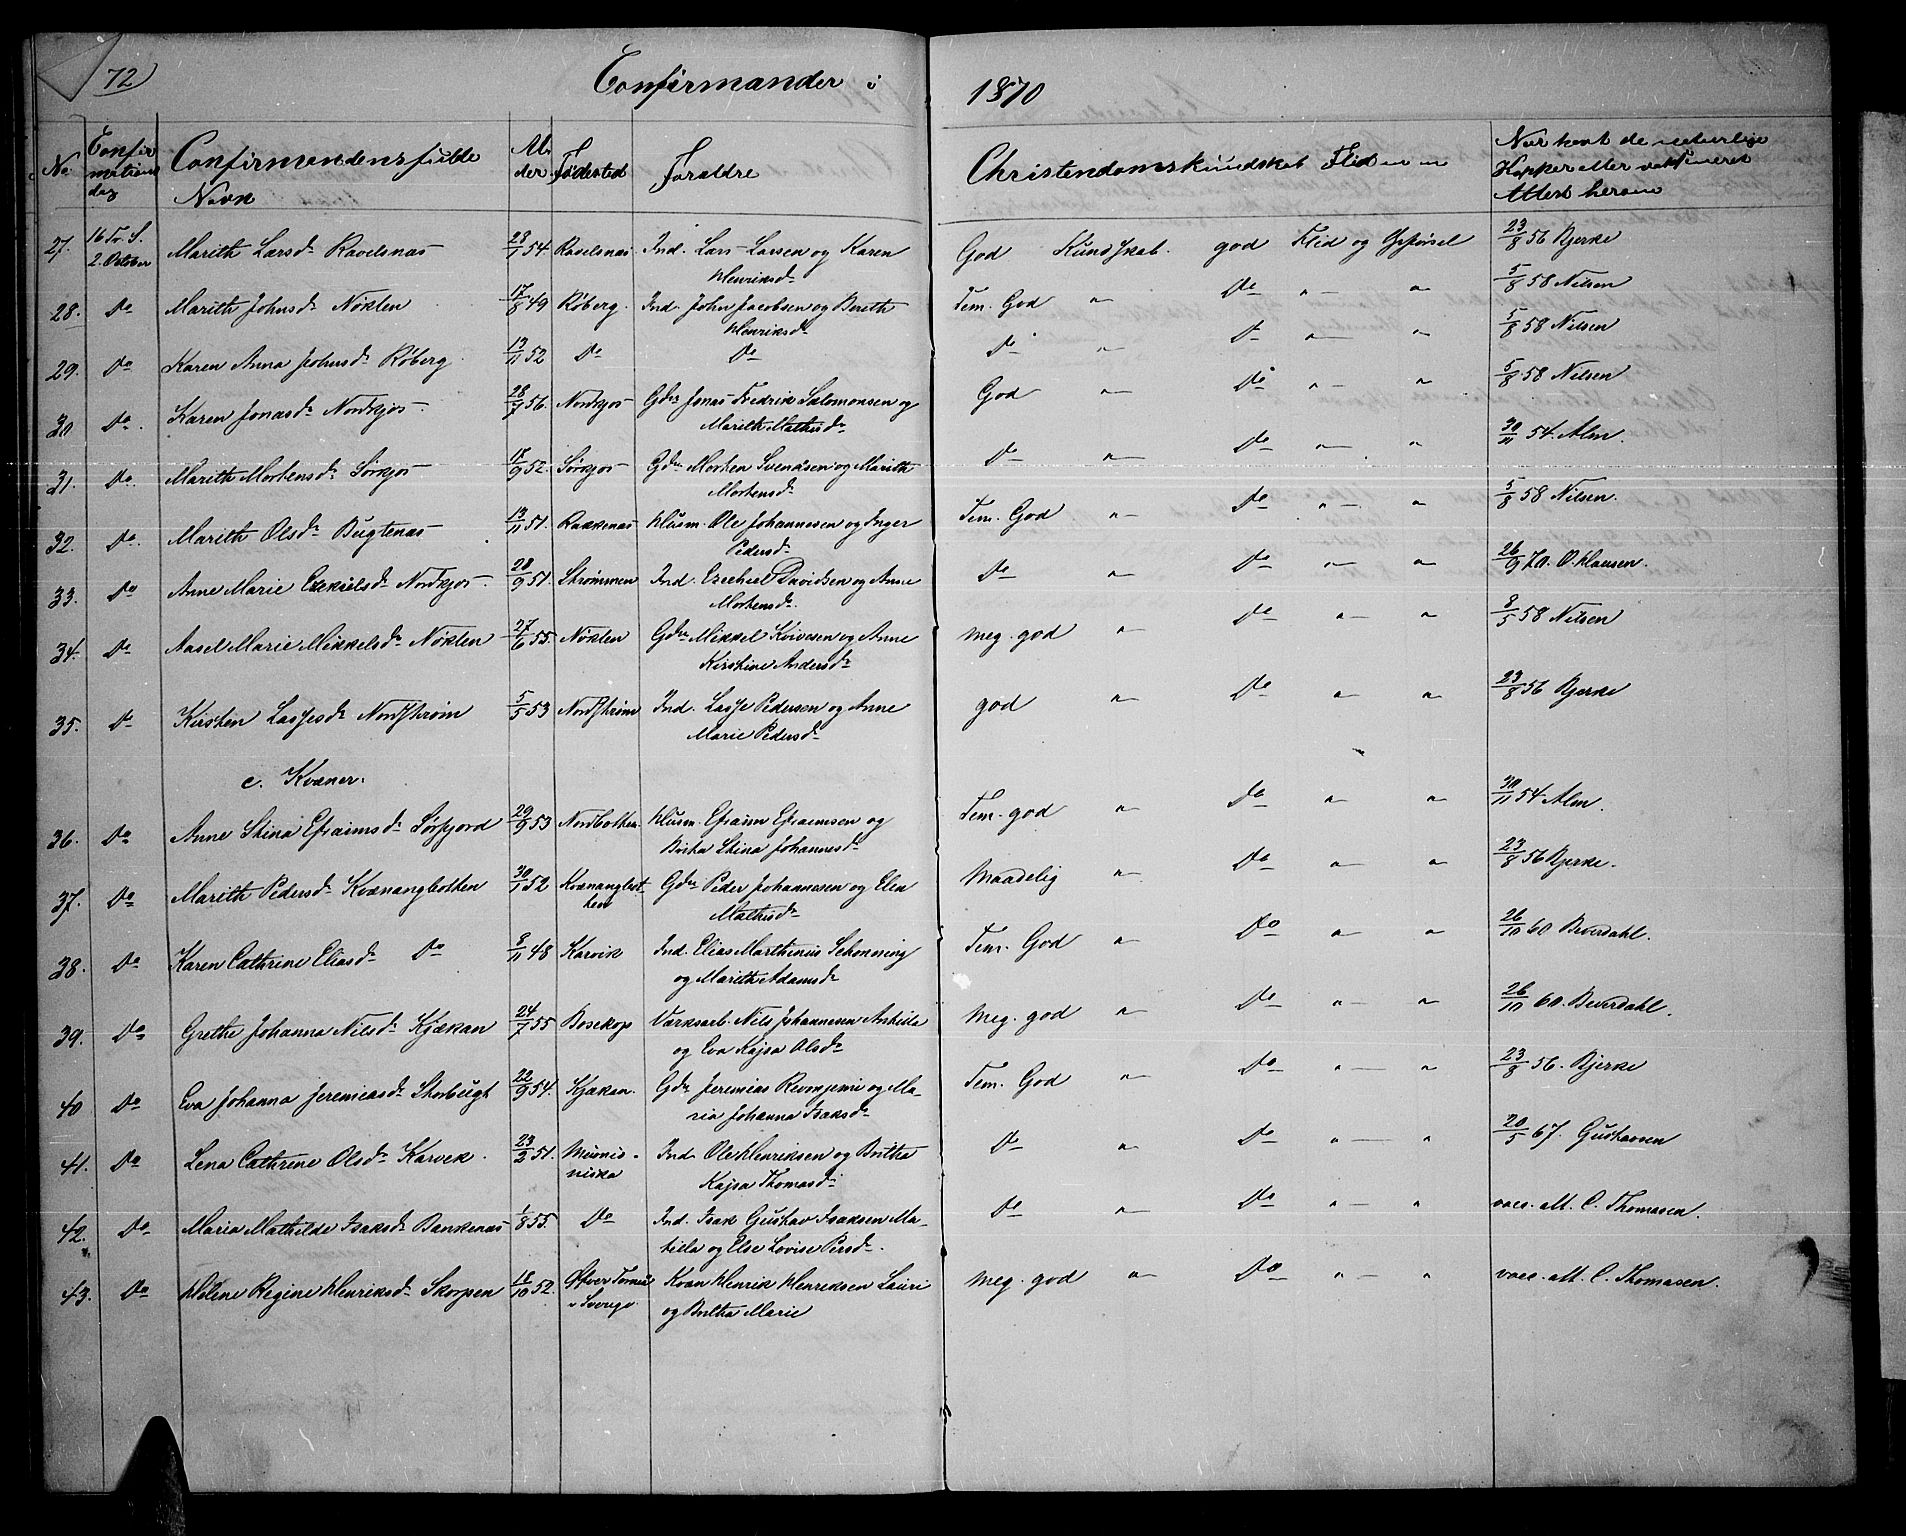 72) Confirmander i 1870
No Confirmations dag Confirmandens fulde Navn Alder Fødested Forældre Christendomskundskab Flid m m Naar havt de naturlige Kopper eller vaksineret Attest herom
27. 16 Tr. S. 2. October Marith Larsd. Ravelsnæs 23/7 54 Ravelsnæs Ind. Lars Larsen og Karen God Kundskab god Flid og Opførsel 23/8 56 Bjerke
Henriksd.
28. Do Marith Johnsd. Nøklen 17/8 49 Røberg. Ind. John Jacobsen og Bereth Tem. God " Do " " 5/8 58 Nilsen
Henriksd.
29. Do Karen Anna Johnsd. Røberg 13/11 52 Do Do Do " D " " 5/8 58 Nilsen
30 Do. Karen Jonasd. Nordkjos 28/7 56. Nordkjos Gdr. Jonas Fredrik Salomonsen og God " Do " " 5/8 58 Nilsen
Marith Mathisd.
31. Do. Marith Mortensd. Sørkjos 18/9 52. Sørkjos Gdr. Morten Svendsen og Marith Do " Do " " 30/11 54. Alm.
Mortensd.
32. Do. Marith Olsd. Bugtenæs 13/11 51. Rakkenæs Husm. Ole Johannesen og Inger Tem. God " Do " " 5/8 58 Nilsen.
Pedersd.
33. Do Anne Marie Ezekielsd. Nordkjos 28/9 51. Strømmen Ind. Ezechiel Davidsen og Anne Do " Do " " 26/9 70. O. Hansen.
Mortensd.
34. Do Aasel Marie Mikkelsd. Nøklen 27/6 55. Nøklen Gdr. Mikkel Kvivesen og Anne Meg. god " Do " " 8/5 58 Nilsen
Kirstine Andersd.
35. Do Kirsten Lassesd. Nordstrøm 5/5 53 Nordstrøm Ind. Lasse Pedersen og Anne god " Do " " 23/8 56 Bjerke
Marie Pedersd.
c. Kvæner.
36. Do Anne Stina Efraimsd. Sørfjord 29/9 53 Nordbotten. Husm. Efraim Efraimsen og Tem. god " Do " " 30/11 54 Alm.
Britha Stina Johannesd.
37. Do Marith Pedersd. Kvænangbotten 30/1 52 Kvænangbotten Gdr. Peder Johannesen og Elen Maadelig " Do " " 23/8 56 Bjerke.
Mathisd.
38. Do Karen Cathrine Eliasd. Do 8/11 48 Karvik Ind. Elias Marthinus Schønning Tem. God " Do " " 26/10 60 Beverdahl.
og Marith Adamsd.
39. Do Grethe Johanna Nilsd. Kjækan 24/7 55 Bosekop Værksarb. Nils Johannesen Anhilla Meg. god " Do " " 26/10 60. Beverdahl.
og Eva Kajsa Olsd.
40 Do Eva Johanna Jeremiasd. Storbugt 22/9 54. Kjækan. Gdr. Jeremias Rempemi og Ma- Tem. God " Do " " 23/8 56. Bjerke
ria Johanna Isaksd.
41. Do Lena Cathrine Olsd. Karvek. 23/2 51. Muonioniska Ind. Ole Henriksen og Britha Do " Do " " 20/5 67. Gustavsen
Kajsa Thomasd.
42. Do Maria Mathilde Isaksd. Bankenæs 1/8 55 Do Ind. Isak Gustav Isaksen Ma- Do " Do " " vacc. att. C. Thomasen.
tiela og Else Lovise Persd.
43. Do Helene Regine Henriksd. Skorpen 18/10 52. Øfver Torneå i Sverige Kvæn Henrik Henriksen Lauri Meg. god " Do " " vacc. att. C. Thomasen.
og Britha Marie